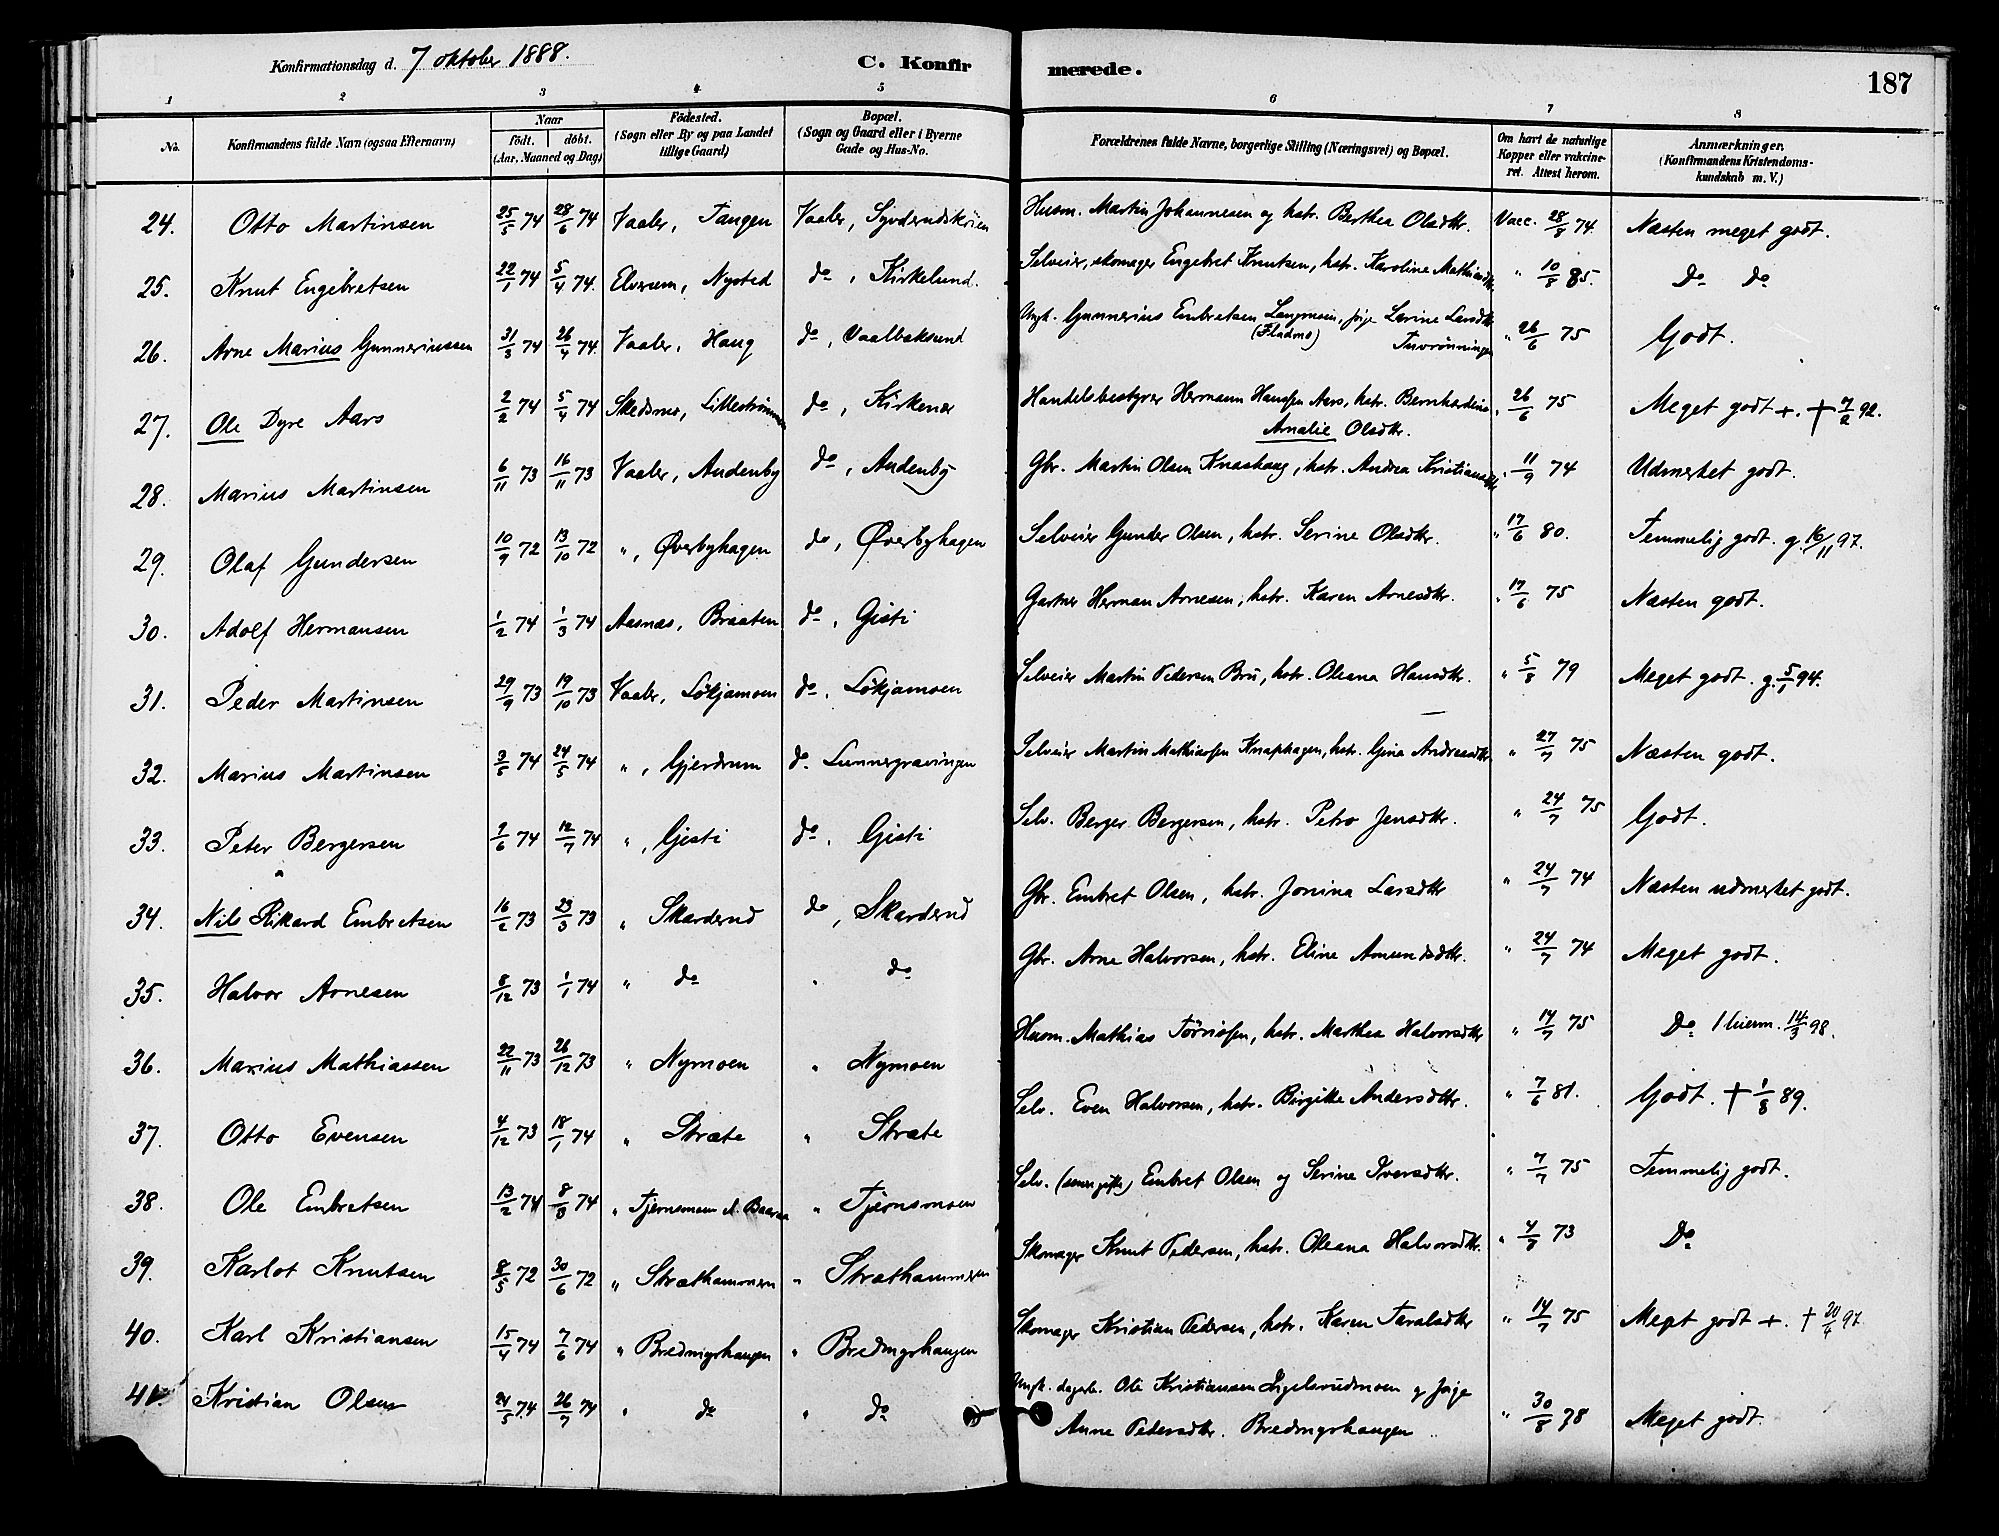 Konfirmationsdag d. 7 oktober 1888. C. Konfirmerede. 187
1 2 3 4 5 6 7 8
No. Konfirmandens fulde Navn (ogsaa Efternavn) Naar födt. döbt. (Aar, Maaned og Dag) Födested. (Sogn eller By og paa Landet tillige Gaard) Bopæl. (Sogn og Gaard eller i Byerne Gade og Hus-No. Forældrenes fulde Navne, borgerlige Stilling (Næringsvei) og Bopæl. Om havt de naturlige Kopper eller vakcineret. Attest herom. Anmærkninger. (Konfirmandens Kristendomskundskab m. V.)
24. Otto Martinsen 25/5 74 28/6 74 Vaaler, Tangen Vaaler, Husm. Martin Johannesen og hstr. Berthea Olsdtr. Vacc. 28/8 74. Næsten meget godt.
25. Knut Engebretsen 22/1 74 5/4 74. Elverum, Nysted do, Kirkelund. Selveier, skomager Engebret Knutsen, hstr. Karoline Mathiasdtr. " 10/8 85. Do do
26. Arne Marius Gunneriussen 31/3 74 26/4 74. Vaaler, Haug do, Vaalbaksund Ungk. Gunnerius Embretsen Langmoen, pige Lovine Larsdtr. " 26/6 75 Godt.
(Fladmo) Tuvrönningen
27. Ole Dyre Aars 2/2 74 5/4 74 Skedsmo, Lilleströmmen do, Kirkener Handelsbestyrer Hermann Hanssen Aars, hstr. Bernhardine " 26/6 75 Meget godt +. † 7/2 92.
Amalie Olsdtr.
28. Marius Martinsen 6/11 73 16/11 73 Vaaler, Audenby do, Audenby Gbr. Martin Olsen Knashaug, hstr. Andrea Kristiansdtr " 11/9 74 Udmerket godt.
29. Olaf Gundersen 10/9 72 13/10 72 ", Øverbyhagen do, Øverbyhagen Selveier Gunder Olsen, hstr. Serine Olsdtr. " 17/6 80. Temmelig godt. g. 16/11 97.
30. Adolf Hermansen 1/2 74 1/3 74 Aasnæs, Braaten do, Gisti Gartner Herman Arnesen, hstr. Karen Arnesdtr. " 17/6 75 Næsten godt.
31. Peder Martinsen 29/9 73 19/10 73 Vaaler, Løkjamoen do. Løkjamoen Selveier Martin Pedersen Bru, hstr. Oleana Hansdtr. " 5/8 79 Meget godt. g. 5/1 94.
32. Marius Martinsen 3/5 74 24/5 74 ", Gjerdrum do. Lunnergravingen Selveier Martin Mathiassen Knaphagen, hstr. Gina Andreasdtr " 27/7 75 Næsten godt.
33. Peter Bergersen 7/6 74 12/7 74 ", Gisti do. Gisti Selv. Berger Bergersen, hstr. Petro Jensdtr. " 24/7 75 Godt.
34. Nils Rikard Embretsen 16/2 73 23/3 73 " Skarderud do, Skarderud Gbr. Embret Olsen, hstr. Jonina Larsdtr " 24/7 74 Næsten udmerket godt.
35. Halvor Arnesen 8/12 73 1/1 74 " do " do Gbr. Arne Halvorsen, hstr. Eline Amundsdtr. " 24/7 74 Meget godt.
36. Marius Mathiassen 22/11 73 26/12 73 " Nymoen " Nymoen Husm. Mathias hstr. Marthea Halvorsdtr " 14/7 75 Do 14/3 98.
37. Otto Evensen 4/12 73 18/1 74 " Stræte " Stræte Selv. Even Halvorsen, hstr. Birgitte Andersdtr. " 7/6 81. Godt. † 1/8 89.
38. Ole Embretsen 13/2 74 8/3 74 " Tjernsmoen " Tjernsmoen Selv. Embret Olsen og Serine Iversdtr. " 7/7 75 Temmelig godt.
39. Karlot Knutsen 8/5 72 30/6 72 " Stræthammeren " Stræthammeren Skomager Knut Pedersen, hstr. Oleana Halvorsdtr. " 4/7 73 Do
40. Karl Kristiansen 15/4 74 7/6 74 " Bredmyrhaugen " Bredmyrhaugen Skomager Kristian Pedersen, hstr. Karen Taraldsdtr " 14/7 75 Meget godt +. † 20/4 97
41. Kristian Olsen 24/5 74 26/7 74 " do " do Ungk. dagarb. Ole Kristiansen Ingelsrudmoen og pige " 30/8 78 Meget godt.
Anne Petersdtr. Bredmyrhaugen